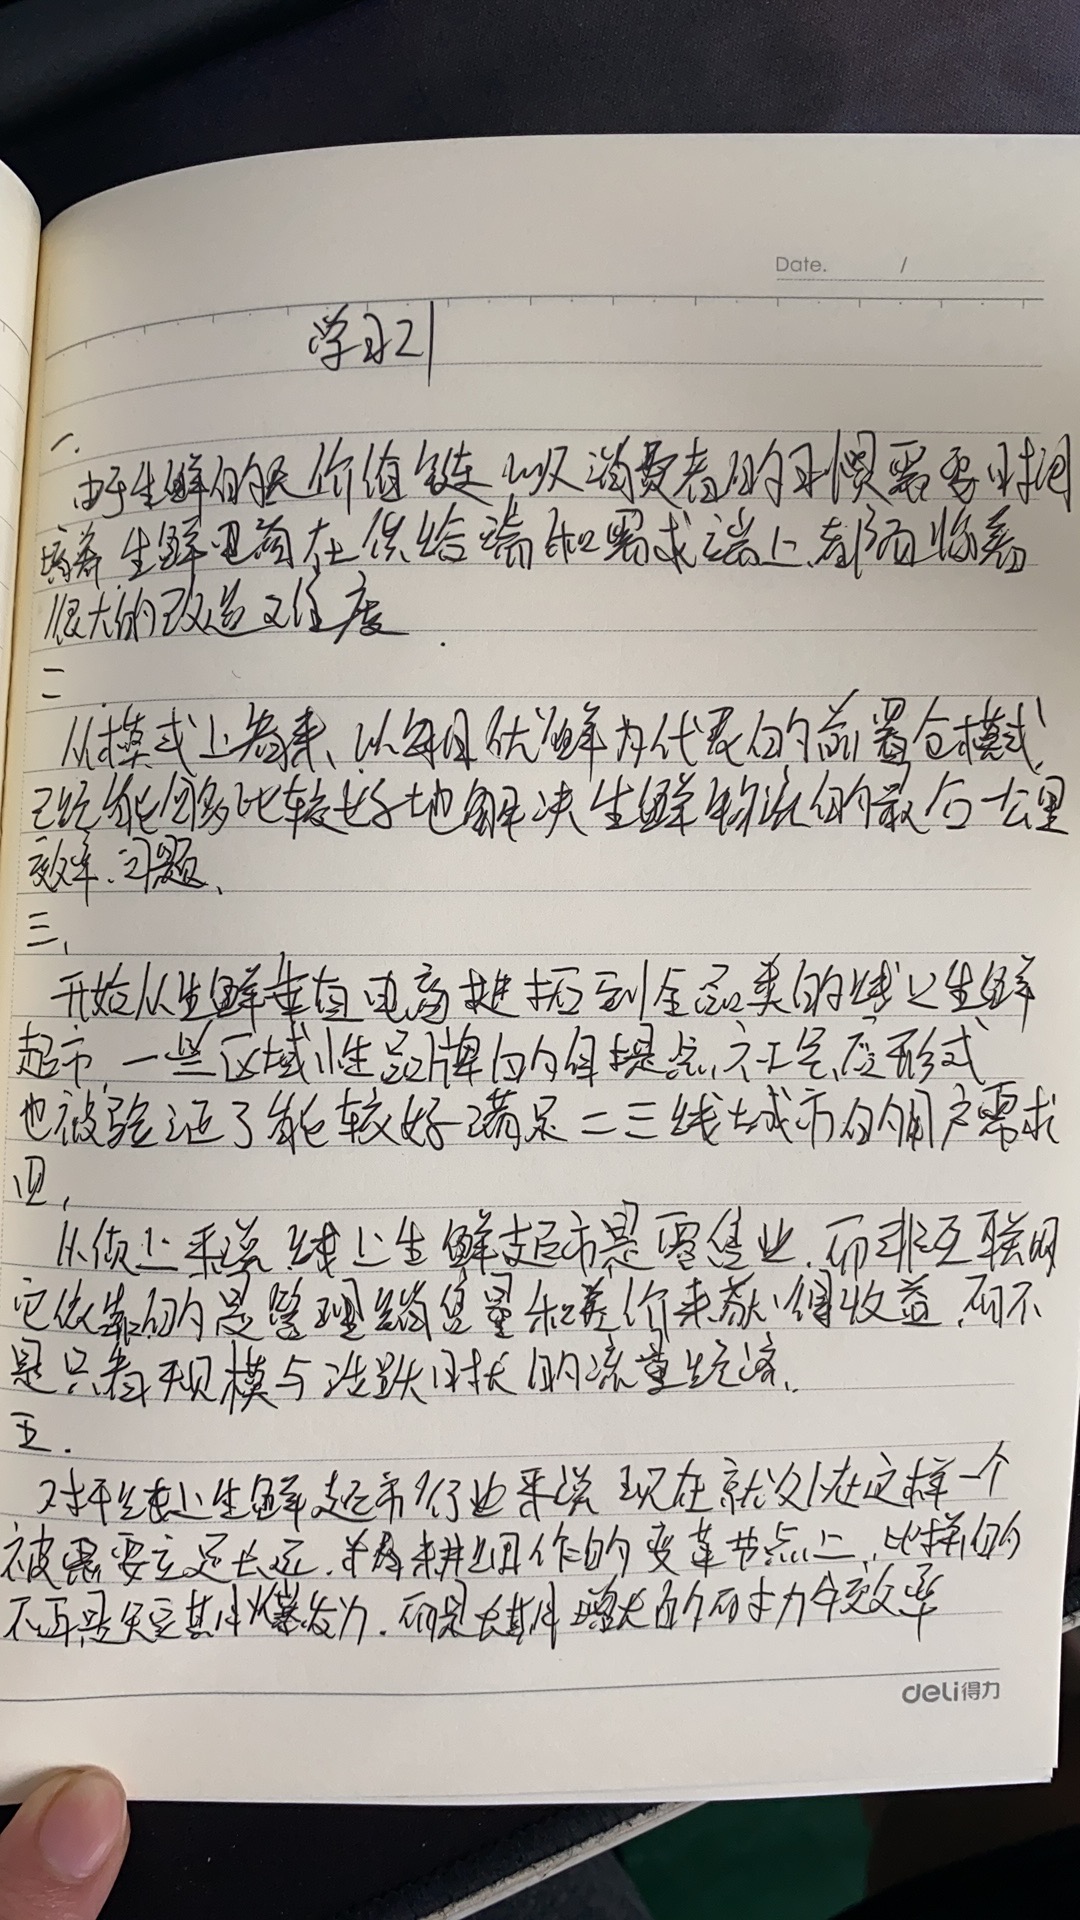 Date. /
学习21
一.
由于生鲜的长价值链 以及消费者的习惯需要时间
培养 生鲜电商在供给端和需求端上、都面临着
很大的改造难度.
二
从模式上看来、以每日优鲜为代表的前置仓模式,
已经能够比较好地解决生鲜物流的最后一公里
效率、问题、
三、
开始从生鲜垂直电商 到全品类的线上生鲜
超市, 一些区域性品牌的自提点、社 形式
也被验证了能较好满足二三线城市的用户需求
四、
从 上来说 线上生鲜超市是零售业、而非互联网
它依靠的是管理销售量和差价来获得收益、而不
是只看规模与活跃时长的流量经济、
五.
对于线上生鲜超市行业来说 现在就 在这样一个
被需要立足长远、 耕 作的变革节点上、比拼的
不再是短期爆发力.而是长期增长的耐力与效率
deli得力